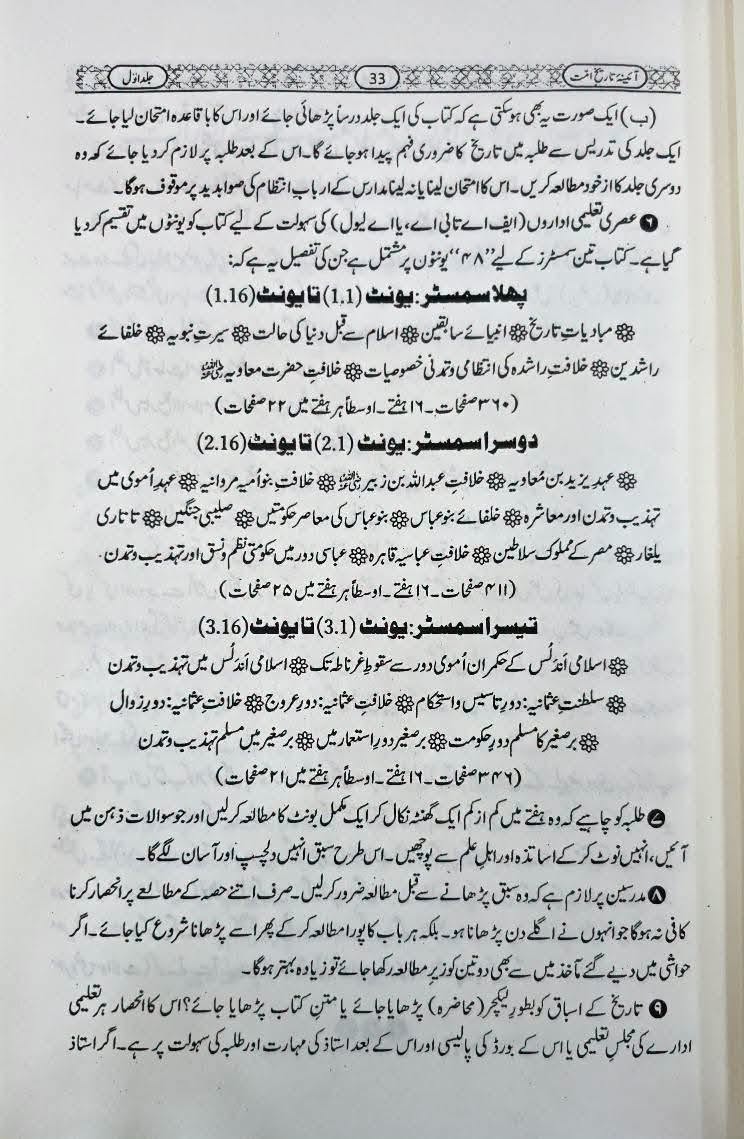 آئینۂ تاریخ امت
33
جلد اوّل
(ب) ایک صورت یہ بھی ہوسکتی ہے کہ کتاب کی ایک جلد درساً پڑھائی جائے اور اس کا باقاعدہ امتحان لیا جائے۔
ایک جلد کی تدریس سے طلبہ میں تاریخ کا ضروری فہم پیدا ہوجائے گا۔ اس کے بعد طلبہ پر لازم کردیا جائے کہ وہ
دوسری جلد کا از خود مطالعہ کریں۔ اس کا امتحان لینا یا نہ لینا مدارس کے اربابِ انتظام کی صوابدید پر موقوف ہوگا۔
❻ عصری تعلیمی اداروں (ایف اے تا بی اے، یا اے لیول) کی سہولت کے لیے کتاب کو یونٹوں میں تقسیم کردیا
گیا ہے۔ کتاب تین سمسٹرز کے لیے ”۴۸“ یونٹوں پر مشتمل ہے جن کی تفصیل یہ ہے کہ:
پہلا سمسٹر: یونٹ (1.1) تا یونٹ (1.16)
❁ مبادیاتِ تاریخ ❁ انبیائے سابقین ❁ اسلام سے قبل دنیا کی حالت ❁ سیرتِ نبویہ ❁ خلفائے
راشدین ❁ خلافتِ راشدہ کی انتظامی و تمدنی خصوصیات ❁ خلافتِ حضرت معاویہ رضی اللہ عنہ
(۳۶۰ صفحات۔ ۱۶ ہفتے۔ اوسطاً ہر ہفتے میں ۲۲ صفحات)
دوسرا سمسٹر: یونٹ (2.1) تا یونٹ (2.16)
❁ عہدِ یزید بن مُعاویہ ❁ خلافتِ عبداللہ بن زبیر رضی اللہ عنہ ❁ خلافتِ بنو اُمیہ مروانیہ ❁ عہدِ اُموی میں
تہذیب و تمدن اور معاشرہ ❁ خلفائے بنو عباس ❁ بنو عباس کی معاصر حکومتیں ❁ صلیبی جنگیں ❁ تاتاری
یلغار ❁ مصر کے مملوک سلاطین ❁ خلافتِ عباسیہ قاہرہ ❁ عباسی دور میں حکومتی نظم و نسق اور تہذیب و تمدن۔
(۴۱۱ صفحات۔ ۱۶ ہفتے۔ اوسطاً ہر ہفتے میں ۲۵ صفحات)
تیسرا سمسٹر: یونٹ (3.1) تا یونٹ (3.16)
❁ اسلامی اَندَلُس کے حکمران اُموی دور سے سقوطِ غرناطہ تک ❁ اسلامی اَندَلُس میں تہذیب و تمدن
❁ سلطنتِ عثمانیہ: دورِ تاسیس و استحکام ❁ خلافتِ عثمانیہ: دورِ عروج ❁ خلافتِ عثمانیہ: دورِ زوال
❁ برصغیر کا مسلم دورِ حکومت ❁ برصغیر دورِ استعمار میں ❁ برصغیر میں مسلم تہذیب و تمدن
(۳۴۶ صفحات۔ ۱۶ ہفتے۔ اوسطاً ہر ہفتے میں ۲۱ صفحات)
❼ طلبہ کو چاہیے کہ وہ ہفتے میں کم از کم ایک گھنٹہ نکال کر ایک مکمل یونٹ کا مطالعہ کرلیں اور جو سوالات ذہن میں
آئیں، انہیں نوٹ کرکے اساتذہ اور اہلِ علم سے پوچھیں۔ اس طرح سبق انہیں دلچسپ اور آسان لگے گا۔
❽ مدرسین پر لازم ہے کہ وہ سبق پڑھانے سے قبل مطالعہ ضرور کرلیں۔ صرف اتنے حصہ کے مطالعے پر انحصار کرنا
کافی نہ ہوگا جو انہوں نے اگلے دن پڑھانا ہو۔ بلکہ ہر باب کا پورا مطالعہ کرکے پھر اسے پڑھانا شروع کیا جائے۔ اگر
حواشی میں دیے گئے مآخذ میں سے بھی دو تین کو زیرِ مطالعہ رکھا جائے تو زیادہ بہتر ہوگا۔
❾ تاریخ کے اسباق کو بطورِ لیکچر (محاضرہ) پڑھایا جائے یا متنِ کتاب پڑھایا جائے؟ اس کا انحصار ہر تعلیمی
ادارے کی مجلسِ تعلیمی یا اس کے بورڈ کی پالیسی اور اس کے بعد استاذ کی مہارت اور طلبہ کی سہولت پر ہے۔ اگر استاذ